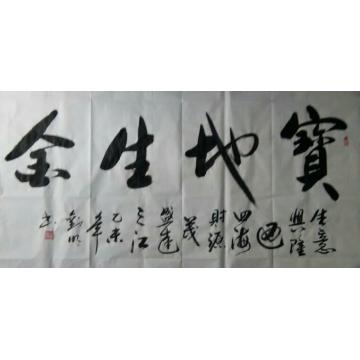 寶地生金
生意
興隆
通
四海
財源
茂
盛達
三江
乙未
年
书